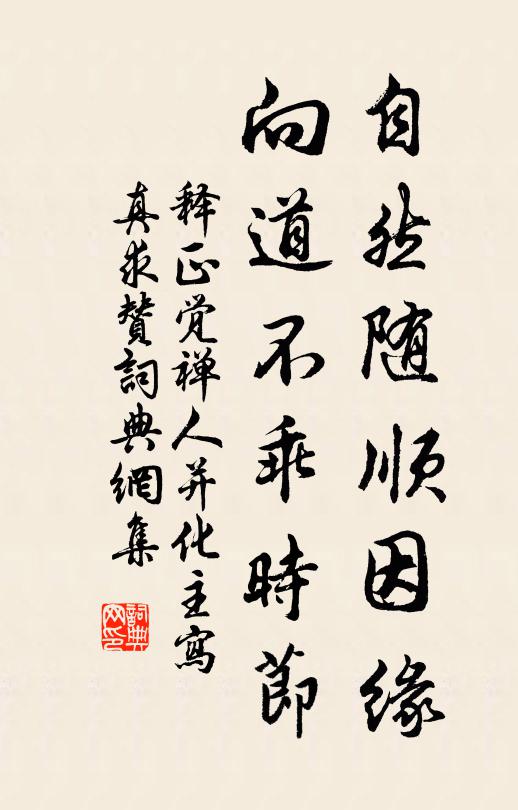 自然随顺因缘
向道不乖時節
释正觉禅人并化主寫
真求赞詞典網集
詞典
网印